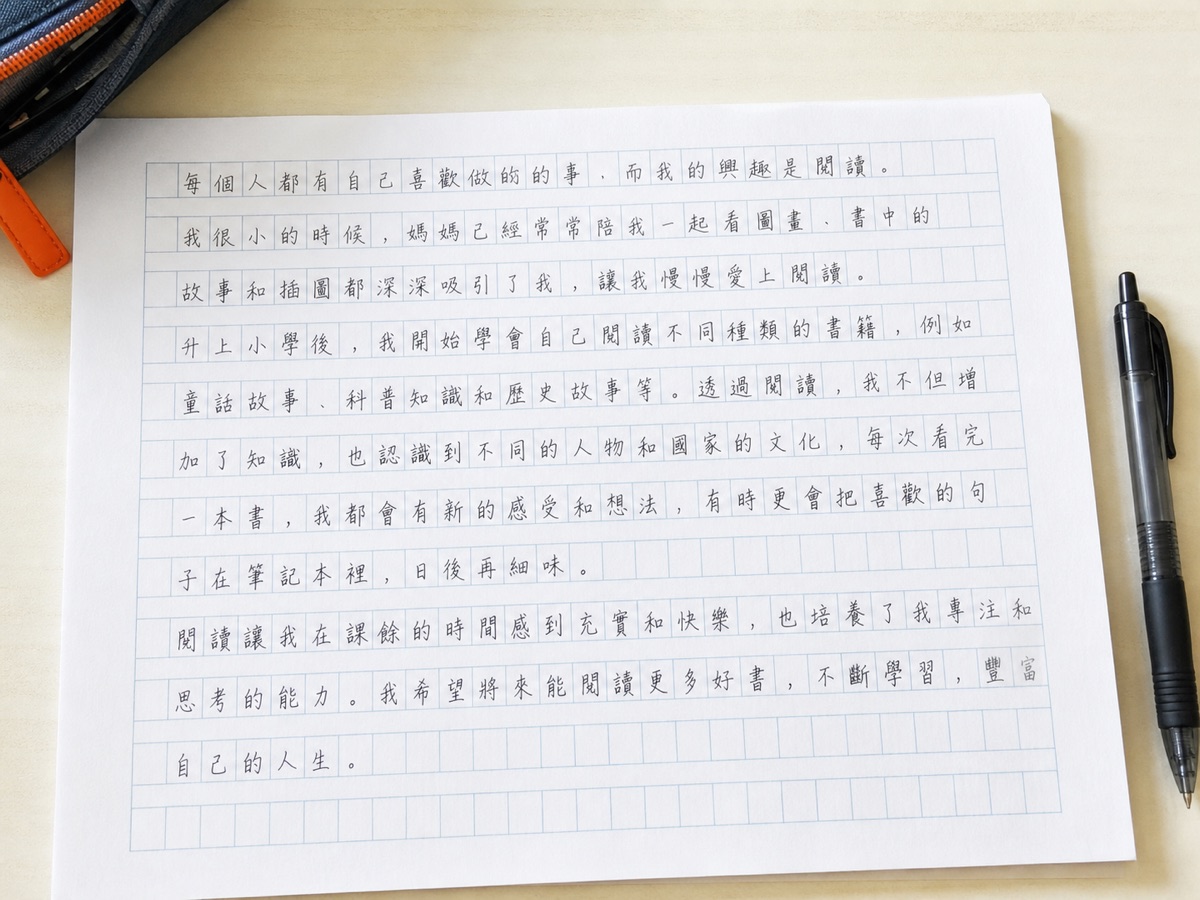 每個人都有自己喜歡做的的事、而我的興趣是閱讀。
我很小的時候，媽媽已經常常陪我一起看圖畫、書中的
故事和插圖都深深吸引了我，讓我慢慢愛上閱讀。
升上小學後，我開始學會自己閱讀不同種類的書籍，例如
童話故事、科普知識和歷史故事等。透過閱讀，我不但增
加了知識，也認識到不同的人物和國家的文化，每次看完
一本書，我都會有新的感受和想法，有時更會把喜歡的句
子在筆記本裡，日後再細味。
閱讀讓我在課餘的時間感到充實和快樂，也培養了我專注和
思考的能力。我希望將來能閱讀更多好書，不斷學習，豐富
自己的人生。